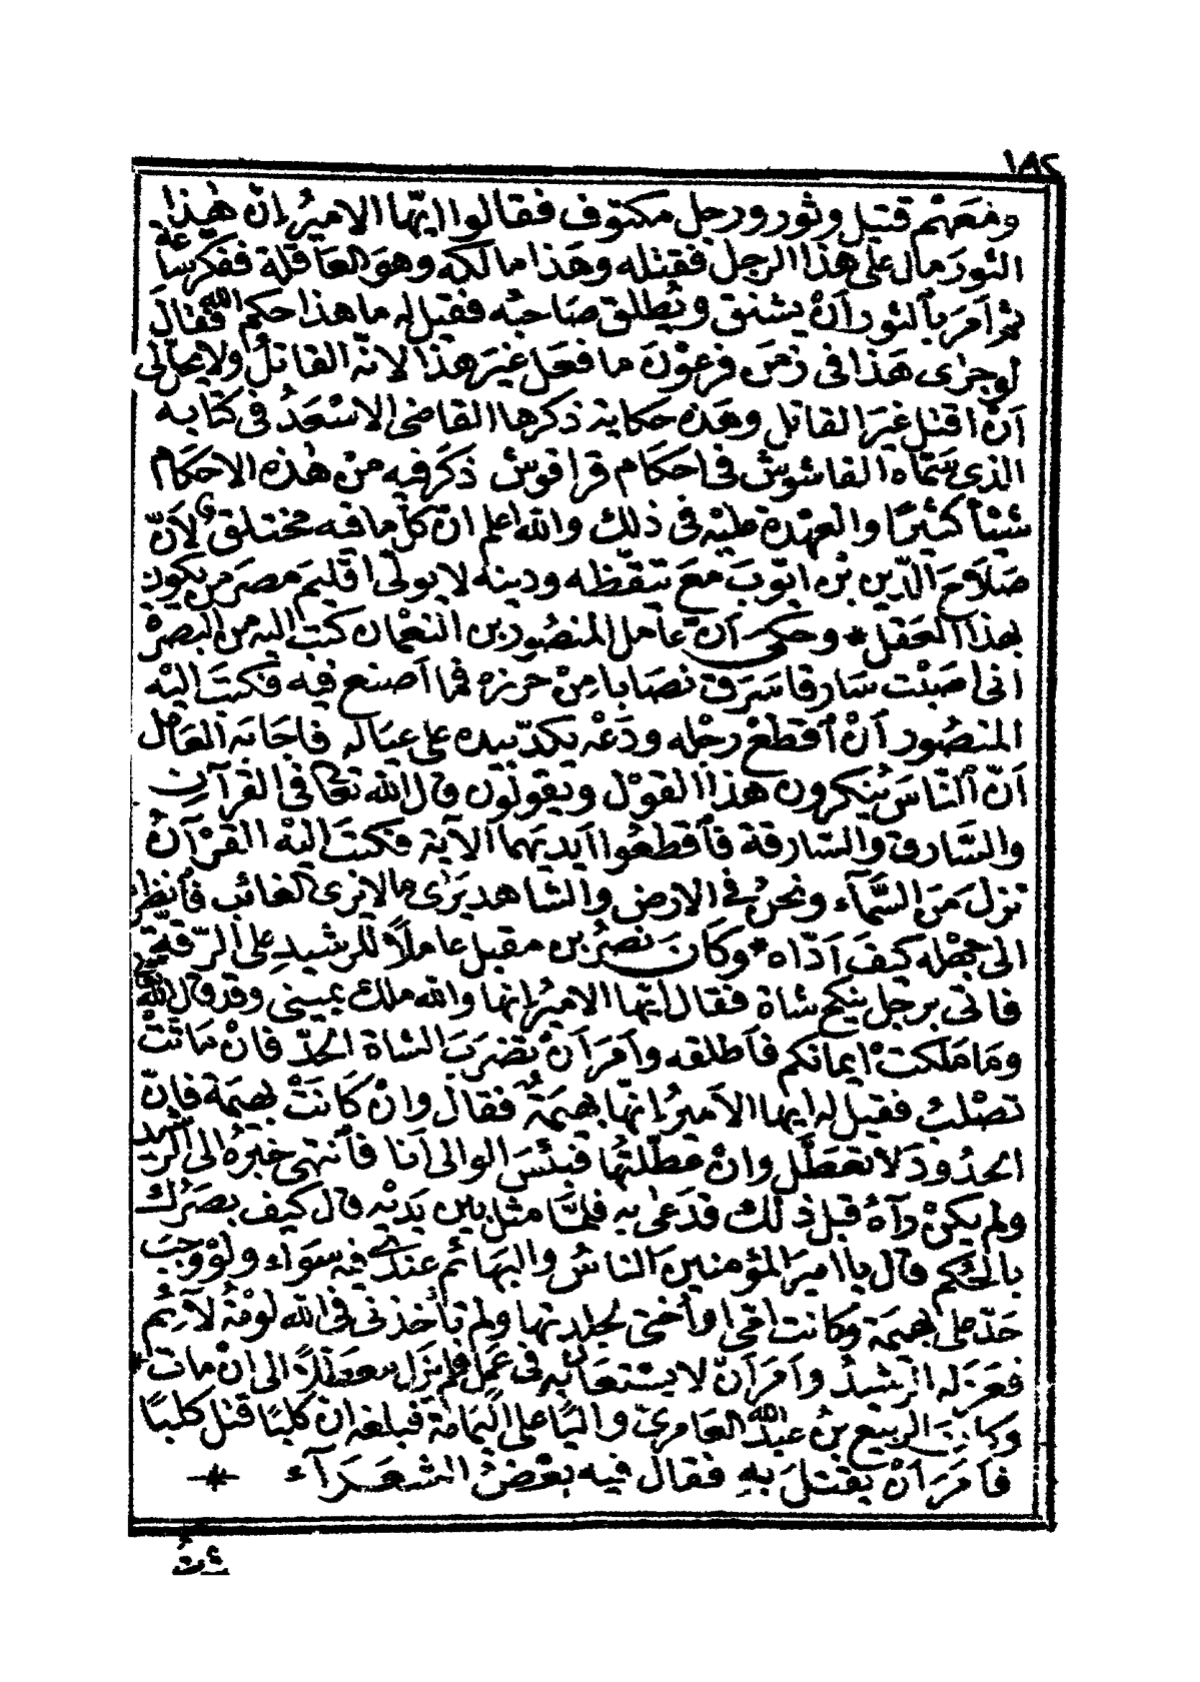 ١٨٢
ومعهم قتيل وثور ورجل مكتوف فقالوا ايها الامير ان هذا
الثور مال على هذا الرجل فقتله وهذا مالكه وهو العاقلة ففكر ساعة
ثم امر بالثور أن يشنق ويطلق صاحبه فقيل له ما هذا حكم الله فقال
لو جرى هذا فى زمن فرعون ما فعل غير هذا لانه القاتل ولا يحل لى
أن اقتل غير القاتل وهذه حكاية ذكرها القاضى الاسعد فى كتابه
الذي سماه الفاشوش فى احكام قراقوش ذكر فيه من هذه الاحكام
شيئا كثيرا والعهدة عليه فى ذلك والله اعلم ان كل ما فيه مختلق لان
صلاح الدين بن ايوب مع تيقظه ودينه لا يولى اقليم مصر من يكون
بهذا العقل * وحكى أن عامل المنصور بن النعمان كتب اليه من البصرة
انى اصبت سارقا سرق نصابا من حرزه فما أصنع فيه فكتب اليه
المنصور أن أقطع رجله ودعه يكد بيده على عياله فاجابه العامل
أن الناس ينكرون هذا القول ويقولون قال الله تعالى فى القرآن
والسارق والسارقة فأقطعوا ايديهما الآية فكتب اليه القرآن
نزل من السماء ونحن في الارض والشاهد يرى ما لا يرى الغائب فأنظر
الى جهله كيف أداه * وكان نصر بن مقبل عاملا للرشيد على الرقة
فاتى برجل ينكح شاة فقال ايها الامير انها والله ملك يمينى وقد قال الله تعالى
وما ملكت ايمانكم فأطلقه وأمر أن تضرب الشاة الحد فان ماتت
تصلب فقيل له ايها الأمير انها بهيمة فقال وان كانت بهيمة فان
الحدود لا تعطل وان عطلتها فبئس الوالى أنا فأنتهى خبره الى الرشيد
ولم يكن رآه قبل ذلك فدعى به فلما مثل بين يديه قال كيف بصرك
بالحكم قال يا امير المؤمنين الناس والبهائم عندي فيه سواء ولو وجب
حد على بهيمة وكانت امى او أختى لجلدتها ولم تأخذنى فى الله لومة لآئم
فعزله الرشيد وأمر أن لا يستعان به فى عمل فلم يزل معطلا الى ان مات *
وكان الربيع بن عبد الله العامرى واليا على اليمامة فبلغه ان كلبا قتل كلبا
فأمر أن يقتل به فقال فيه بعض الشعرآء *